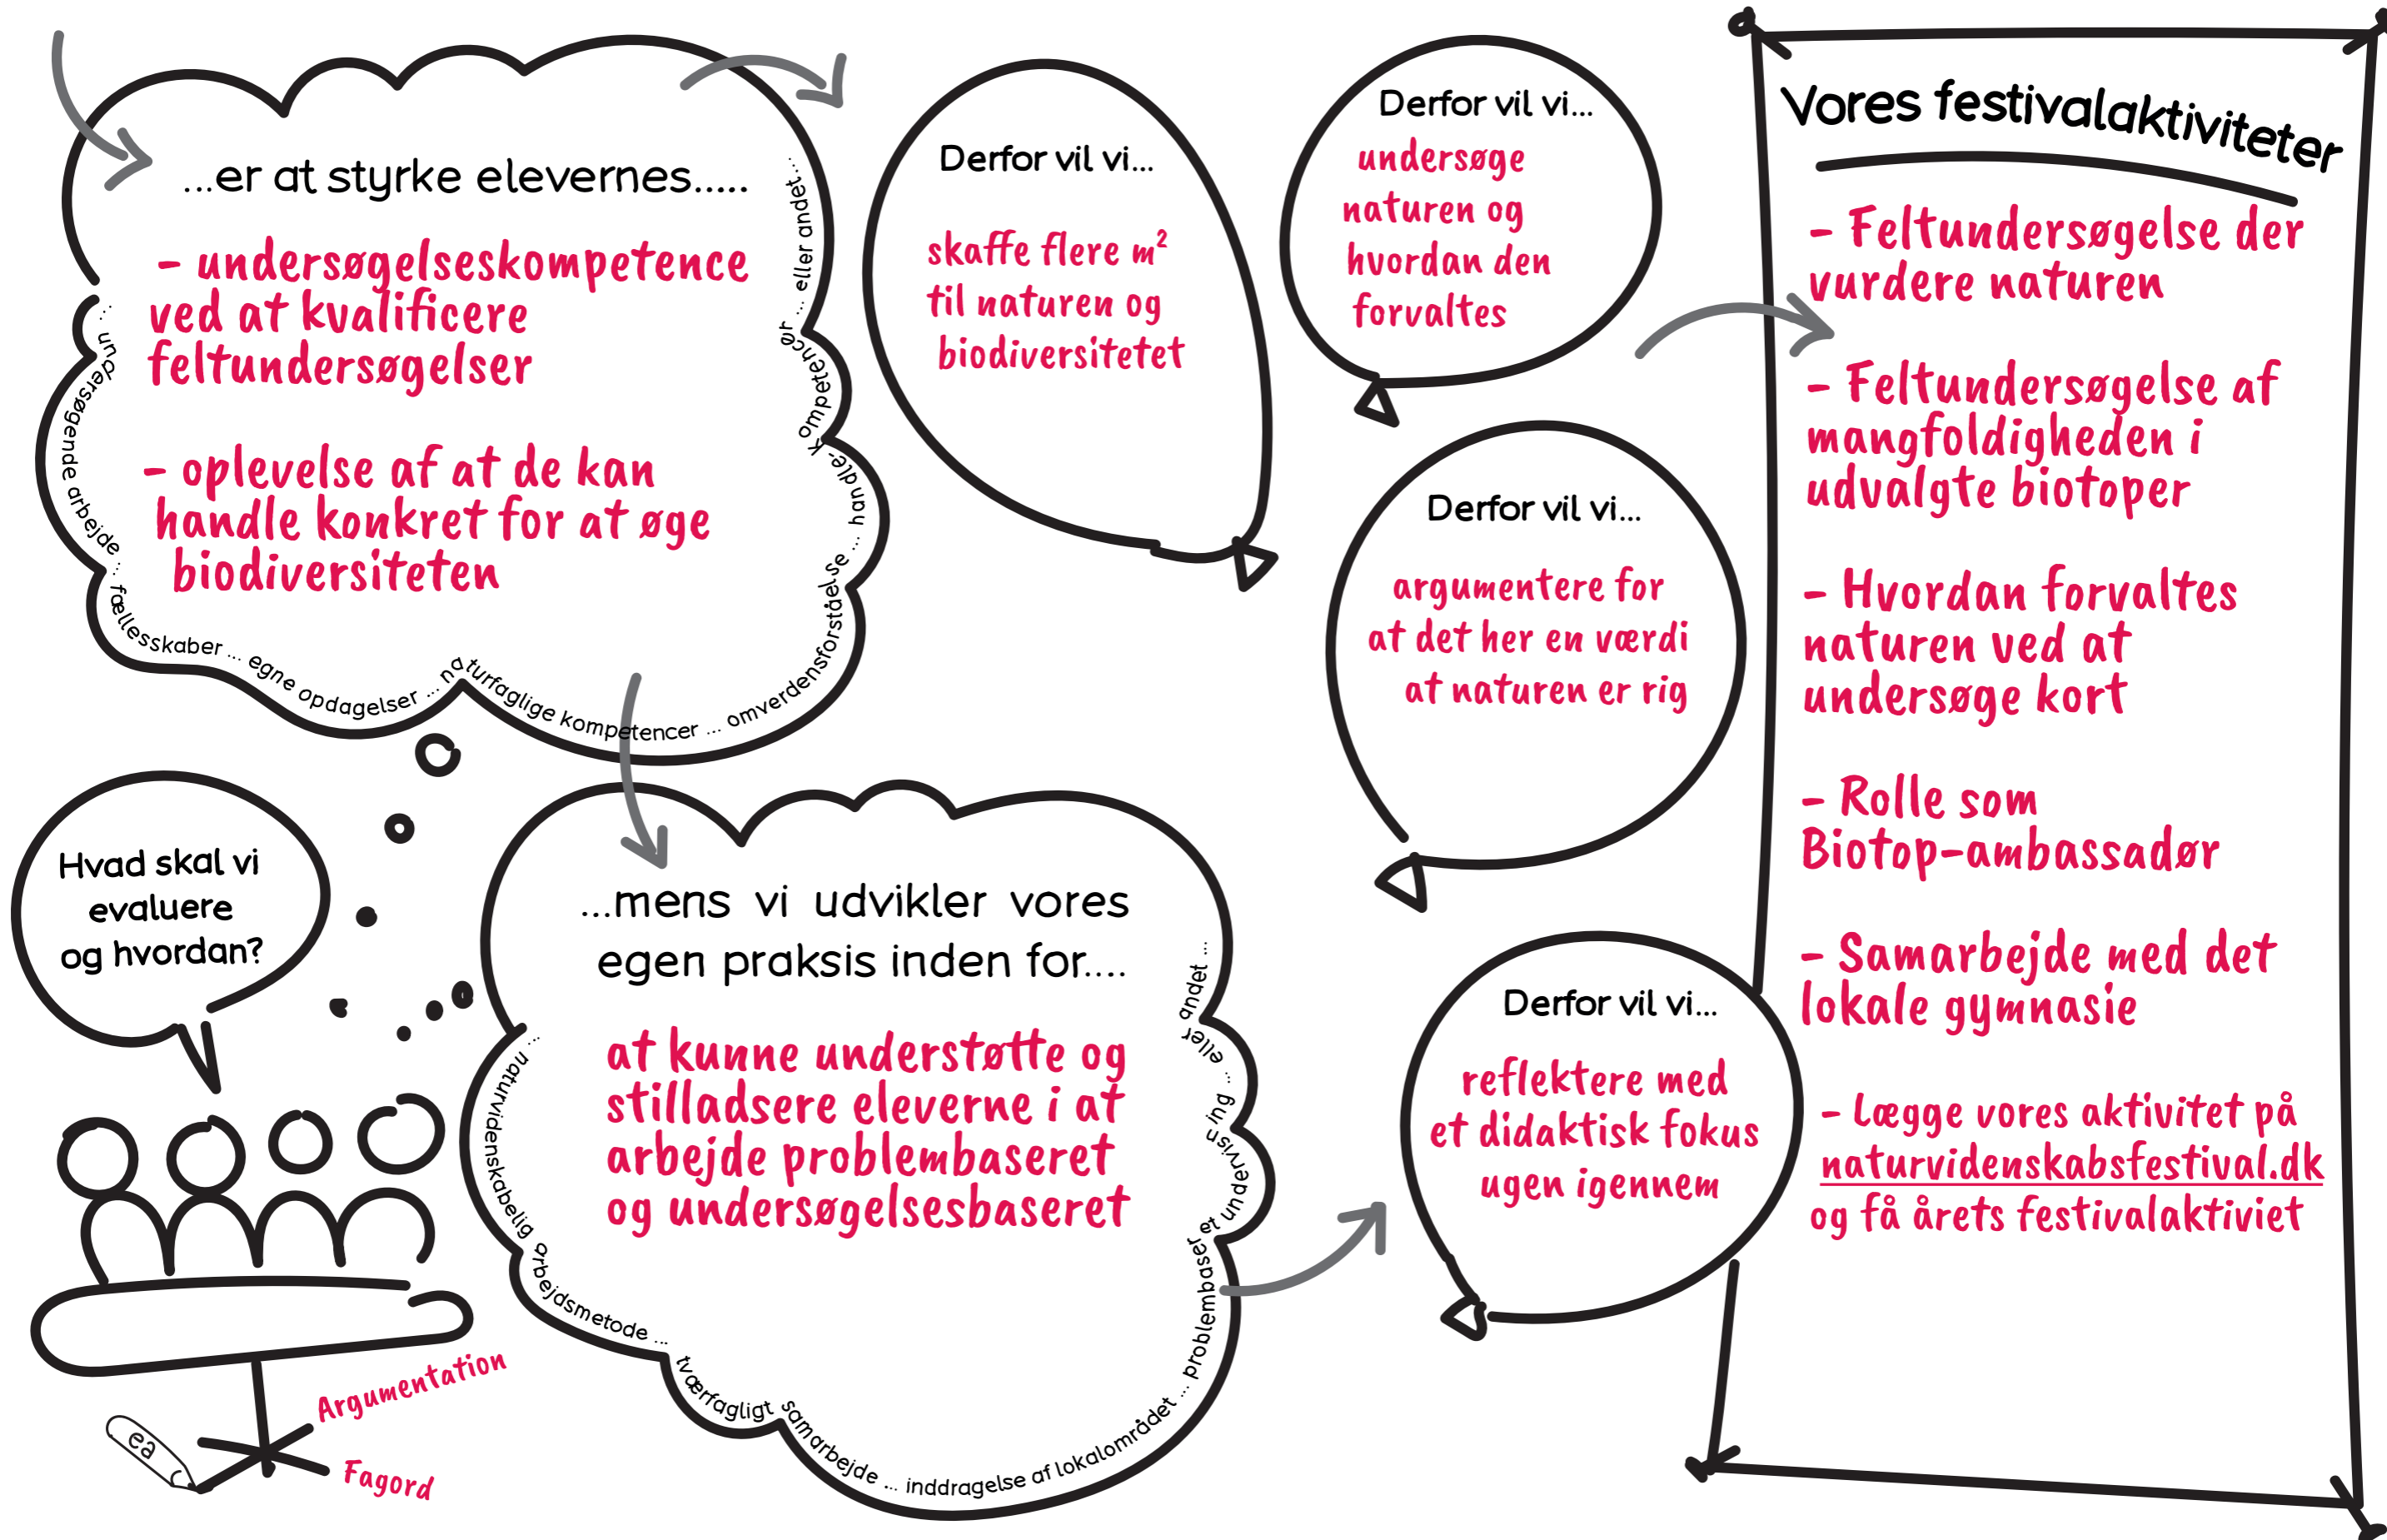 ...er at styrke elevernes.....
- undersøgelseskompetence
ved at kvalificere
feltundersøgelser
- oplevelse af at de kan
handle konkret for at øge
biodiversiteten
... undersøgende arbejde ... fællesskaber ... egne opdagelser ... naturfaglige kompetencer ... omverdensforståelse ... handle-kompetence ... eller andet...
Derfor vil vi...
skaffe flere m²
til naturen og
biodiversitetet
Derfor vil vi...
undersøge
naturen og
hvordan den
forvaltes
Derfor vil vi...
argumentere for
at det her en værdi
at naturen er rig
Hvad skal vi
evaluere
og hvordan?
...mens vi udvikler vores
egen praksis inden for....
at kunne understøtte og
stilladsere eleverne i at
arbejde problembaseret
og undersøgelsesbaseret
... naturvidenskabelig arbejdsmetode ... tværfagligt samarbejde ... inddragelse af lokalområdet ... problembaseret undervisning ... eller andet ...
Derfor vil vi...
reflektere med
et didaktisk fokus
ugen igennem
Argumentation
Fagord
ea
Vores festivalaktiviteter
- Feltundersøgelse der
vurdere naturen
- Feltundersøgelse af
mangfoldigheden i
udvalgte biotoper
- Hvordan forvaltes
naturen ved at
undersøge kort
- Rolle som
Biotop-ambassadør
- Samarbejde med det
lokale gymnasie
- Lægge vores aktivitet på
naturvidenskabsfestival.dk
og få årets festivalaktiviet